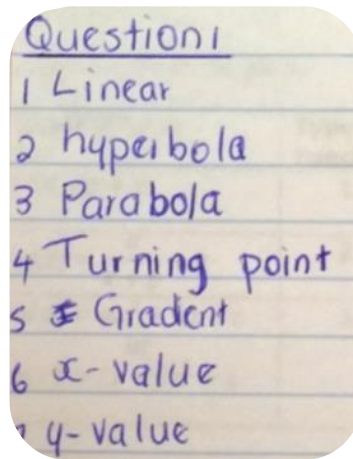 Question 1
1 Linear
2 hyperbola
3 Parabola
4 Turning point
5 Gradent
6 x-value
y-value